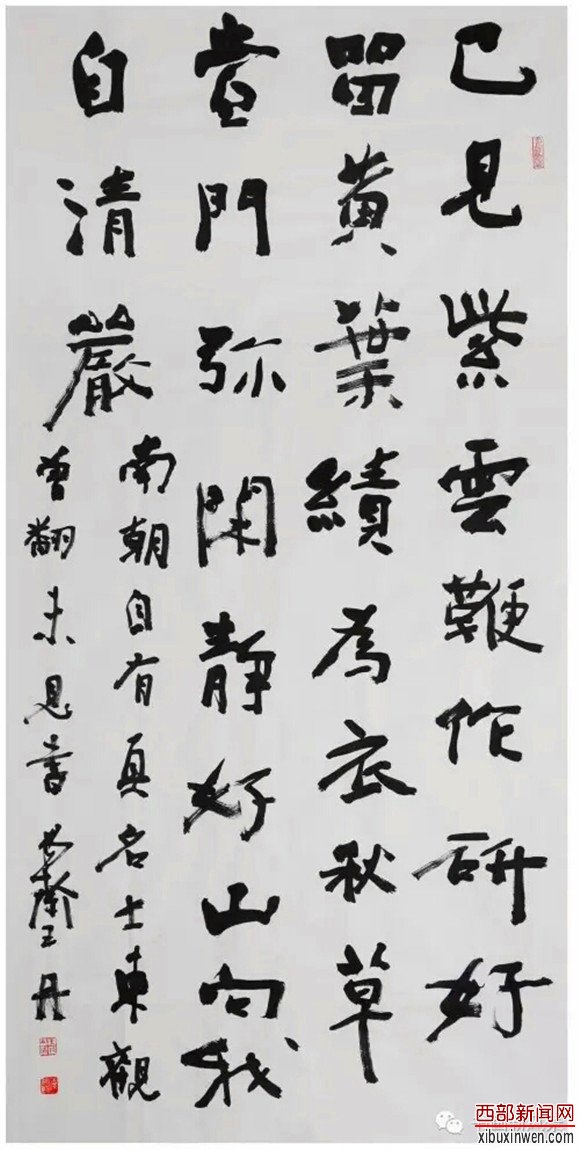 已見紫雲鞭作研好
留黃葉績為衣秋草
當門弥閑靜好山向我
自清嚴
南朝自有真名士東觀
曾翻未見書 齋王丹
西部新闻网
xibuxinwen.com